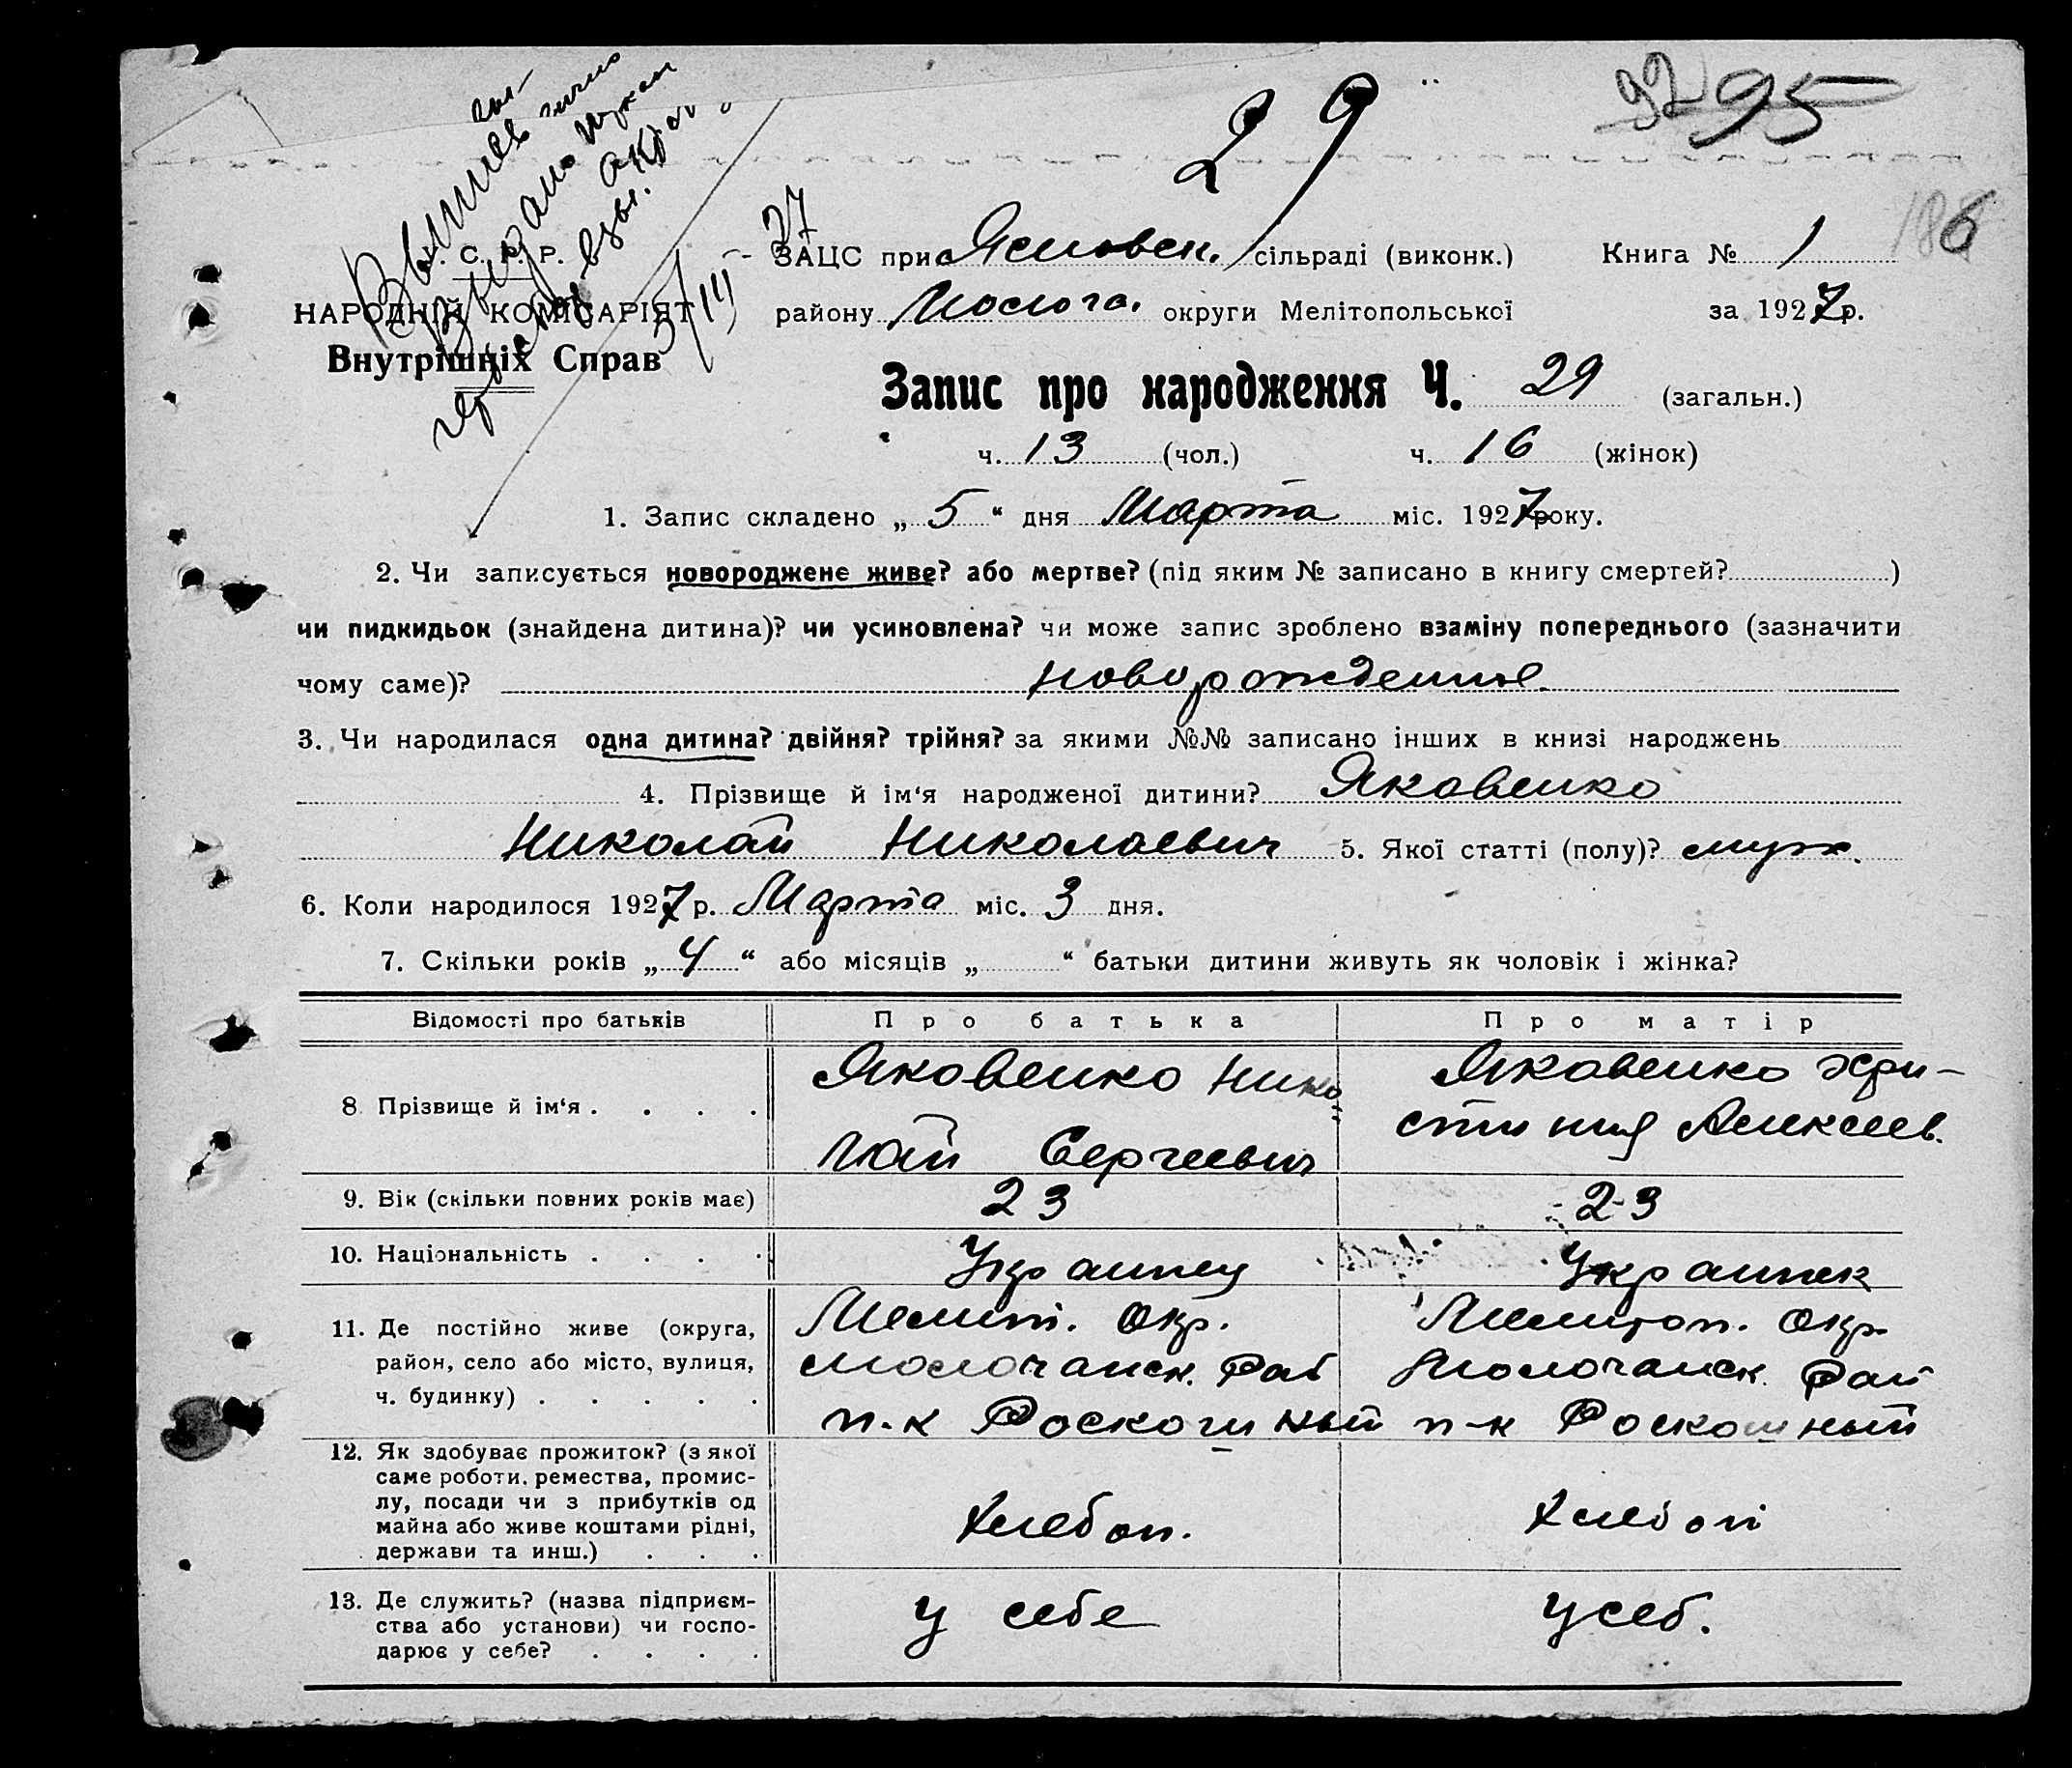 29
92 95
186
37
У. С. Р. Р.
НАРОДНІЙ КОМІСАРІЯТ
Внутрішніх Справ
ЗАЦС при Ясиновск. сільраді (виконк.) Книга № 1
району Молоча. округи Мелітопольської за 1927 р.
Запис про народження Ч. 29 (загальн.)
ч. 13 (чол.) ч. 16 (жінок)
1. Запис складено „ 5 “ дня Марта міс. 1927 року.
2. Чи записується новороджене живе? або мертве? (під яким № записано в книгу смертей? )
чи пидкидьок (знайдена дитина)? чи усиновлена? чи може запис зроблено взаміну попереднього (зазначити
чому саме)? новорожденные
3. Чи народилася одна дитина? двійня? трійня? за якими №№ записано інших в книзі народжень
4. Прізвище й ім‘я народженої дитини? Яковенко
Николай Николаевич 5. Якої статті (полу)? муж.
6. Коли народилося 1927 р. Марта міс. 3 дня.
7. Скільки років „ 4 “ або місяців „ “ батьки дитини живуть як чоловік і жінка?
Відомості про батьків Про батька Про матір
8 Прізвище й ім‘я . . . . Яковенко Нико Яковенко Хри-
лай Сергеевич стиния Алексеев.
9. Вік (скільки повних років має) 23 23
10. Національність . . . . Украинец Украинек
11. Де постійно живе (округа, Мелит. Окр. Мелитоп. Окр.
район, село або місто, вулиця, Молочанск. Рай Молочанск. Рай
ч. будинку) . . . . . п-к Роскошный п-к Роскошный
12. Як здобуває прожиток? (з якої
саме роботи, ремества, промис-
лу, посади чи з прибутків од Хлебоп. Хлебоп
майна або живе коштами рідні,
держави та инш.) . . .
13. Де служить? (назва підприєм-
ства або установи) чи госпо- у себе у себ.
дарює у себе? . . . .